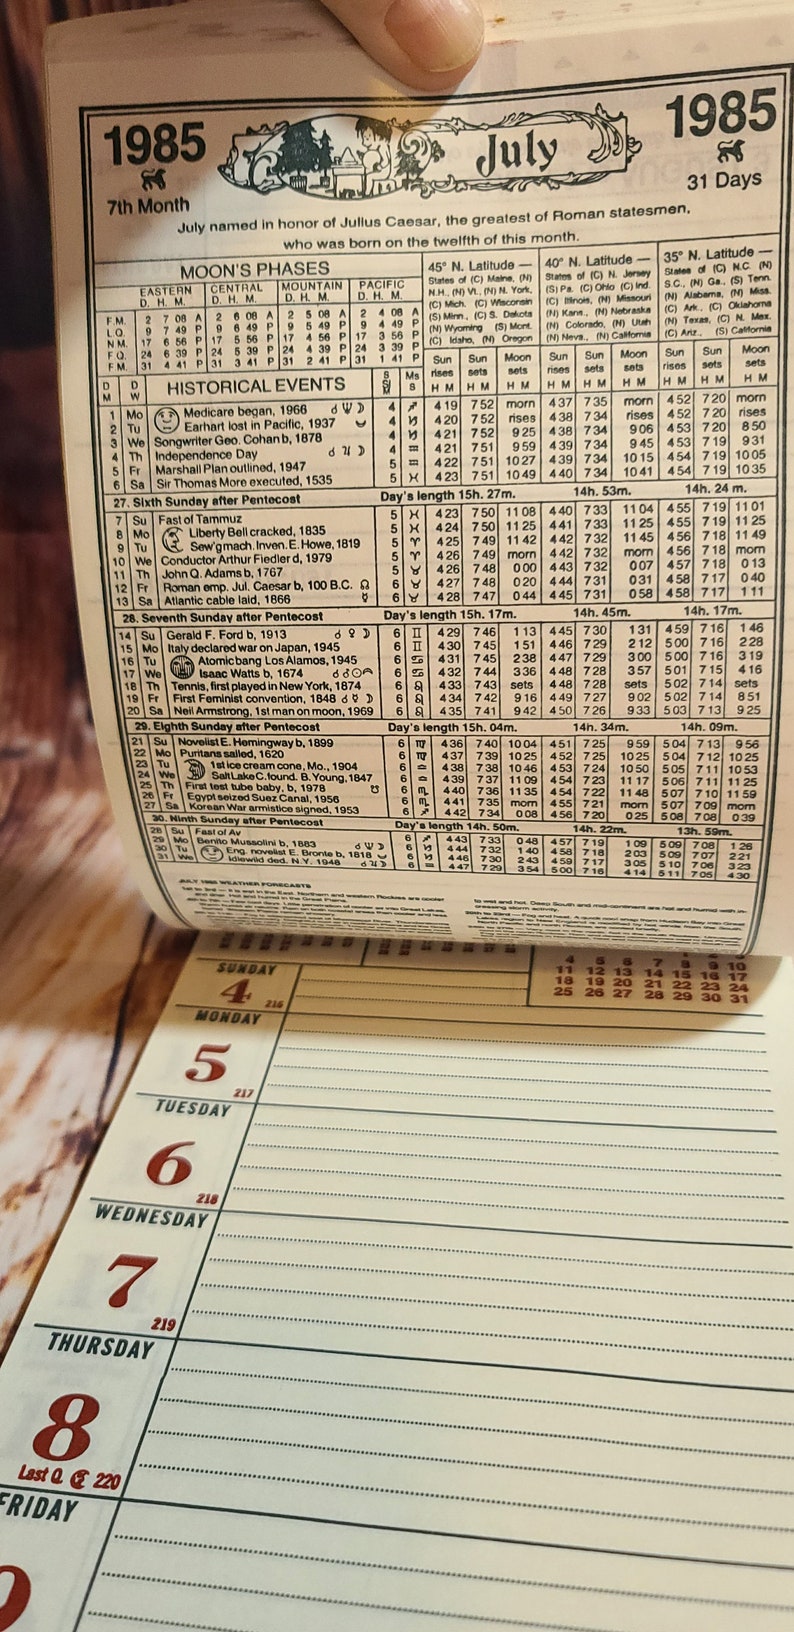 1985 July 1985
7th Month 31 Days
July named in honor of Julius Caesar, the greatest of Roman statesmen,
who was born on the twelfth of this month.
MOON'S PHASES
EASTERN CENTRAL MOUNTAIN PACIFIC
D. H. M. D. H. M. D. H. M. D. H. M.
F.M. 2 7 08 A 2 6 08 A 2 5 08 A 2 4 08 A
L.Q. 9 7 49 P 9 6 49 P 9 5 49 P 9 4 49 P
N.M. 17 6 56 P 17 5 56 P 17 4 56 P 17 3 56 P
F.Q. 24 6 39 P 24 5 39 P 24 4 39 P 24 3 39 P
F.M. 31 4 41 P 31 3 41 P 31 2 41 P 31 1 41 P
45° N. Latitude —
States of (C) Maine, (N)
N.H., (N) Vt., (N) N. York,
(C) Mich. (C) Wisconsin
(S) Minn., (C) S. Dakota
(N) Wyoming (S) Mont.
(C) Idaho, (N) Oregon
40° N. Latitude —
States of (C) N. Jersey
(S) Pa. (C) Ohio (C) Ind.
(C) Illinois, (N) Missouri
(N) Kans., (N) Nebraska
(N) Colorado, (N) Utah
(N) Nev., (N) California
35° N. Latitude —
States of (C) N.C. (N)
S.C., (N) Ga., (S) Tenn.
(N) Alabama, (N) Miss.
(C) Ark., (C) Oklahoma
(N) Texas, (C) N. Mex.
(C) Ariz., (S) California
D M D W HISTORICAL EVENTS Ms S Sun rises H M Sun sets H M Moon sets H M Sun rises H M Sun sets H M Moon sets H M Sun rises H M Sun sets H M Moon sets H M
1 Mo Medicare began, 1966 ☌♆☽ 4 ♐ 4 19 7 52 morn 4 37 7 35 morn 4 52 7 20 morn
2 Tu Earhart lost in Pacific, 1937 4 ♑ 4 20 7 52 rises 4 38 7 34 rises 4 52 7 20 rises
3 We Songwriter Geo. Cohan b, 1878 4 ♑ 4 21 7 52 9 25 4 38 7 34 9 06 4 53 7 20 8 50
4 Th Independence Day ☌♃☽ 4 ♒ 4 21 7 51 9 59 4 39 7 34 9 45 4 53 7 19 9 31
5 Fr Marshall Plan outlined, 1947 5 ♒ 4 22 7 51 10 27 4 39 7 34 10 15 4 54 7 19 10 05
6 Sa Sir Thomas More executed, 1535 5 ♓ 4 23 7 51 10 49 4 40 7 34 10 41 4 54 7 19 10 35
27. Sixth Sunday after Pentecost Day's length 15h. 27m. 14h. 53m. 14h. 24 m.
7 Su Fast of Tammuz 5 ♓ 4 23 7 50 11 08 4 40 7 33 11 04 4 55 7 19 11 01
8 Mo Liberty Bell cracked, 1835 5 ♓ 4 24 7 50 11 25 4 41 7 33 11 25 4 55 7 19 11 25
9 Tu Sew'g mach. Inven. E. Howe, 1819 5 ♈ 4 25 7 49 11 42 4 42 7 32 11 45 4 56 7 18 11 49
10 We Conductor Arthur Fiedler d, 1979 5 ♈ 4 26 7 49 morn 4 42 7 32 morn 4 56 7 18 morn
11 Th John Q. Adams b, 1767 5 ♉ 4 26 7 48 0 00 4 43 7 32 0 07 4 57 7 18 0 13
12 Fr Roman emp. Jul. Caesar b, 100 B.C. ☊ 6 ♉ 4 27 7 48 0 20 4 44 7 31 0 31 4 58 7 17 0 40
13 Sa Atlantic cable laid, 1866 ☿ 6 ♉ 4 28 7 47 0 44 4 45 7 31 0 58 4 58 7 17 1 11
28. Seventh Sunday after Pentecost Day's length 15h. 17m. 14h. 45m. 14h. 17m.
14 Su Gerald F. Ford b, 1913 ☌♀☽ 6 ♊ 4 29 7 46 1 13 4 45 7 30 1 31 4 59 7 16 1 46
15 Mo Italy declared war on Japan, 1945 6 ♊ 4 30 7 45 1 51 4 46 7 29 2 12 5 00 7 16 2 28
16 Tu Atomic bang Los Alamos, 1945 6 ♋ 4 31 7 45 2 38 4 47 7 29 3 00 5 00 7 16 3 19
17 We Isaac Watts b, 1674 6 ♋ 4 32 7 44 3 36 4 48 7 28 3 57 5 01 7 15 4 16
18 Th Tennis, first played in New York, 1874 6 ♌ 4 33 7 43 sets 4 48 7 28 sets 5 02 7 14 sets
19 Fr First Feminist convention, 1848 ☌☿☽ 6 ♌ 4 34 7 42 9 16 4 49 7 27 9 02 5 02 7 14 8 51
20 Sa Neil Armstrong, 1st man on moon, 1969 6 ♌ 4 35 7 41 9 42 4 50 7 26 9 33 5 03 7 13 9 25
29. Eighth Sunday after Pentecost Day's length 15h. 04m. 14h. 34m. 14h. 09m.
21 Su Novelist E. Hemingway b, 1899 6 ♍ 4 36 7 40 10 04 4 51 7 25 9 59 5 04 7 13 9 56
22 Mo Puritans sailed, 1620 6 ♍ 4 37 7 39 10 25 4 52 7 25 10 25 5 04 7 12 10 25
23 Tu 1st ice cream cone, Mo., 1904 6 ♎ 4 38 7 38 10 46 4 53 7 24 10 50 5 05 7 11 10 53
24 We Salt Lake C. found. B. Young, 1847 6 ♎ 4 39 7 37 11 09 4 54 7 23 11 17 5 06 7 11 11 25
25 Th First test tube baby, b, 1978 6 ♏ 4 40 7 36 11 35 4 54 7 22 11 48 5 07 7 10 11 59
26 Fr Egypt seized Suez Canal, 1956 6 ♏ 4 41 7 35 morn 4 55 7 21 morn 5 07 7 09 morn
27 Sa Korean War armistice signed, 1953 6 ♐ 4 42 7 34 0 08 4 56 7 20 0 25 5 08 7 08 0 39
30. Ninth Sunday after Pentecost Day's length 14h. 50m. 14h. 22m. 13h. 59m.
28 Su Fast of Av 6 ♐ 4 43 7 33 0 48 4 57 7 19 1 09 5 09 7 08 1 26
29 Mo Benito Mussolini b, 1883 ☌♆☽ 6 ♑ 4 44 7 32 1 40 4 58 7 18 2 03 5 09 7 07 2 21
30 Tu Eng. novelist E. Bronte b, 1818 6 ♑ 4 46 7 30 2 43 4 59 7 17 3 05 5 10 7 06 3 23
31 We Idlewild ded. N.Y. 1948 ☌♃☽ 6 ♒ 4 47 7 29 3 54 5 00 7 16 4 14 5 11 7 05 4 30
JULY 1985 WEATHER FORECASTS
SUNDAY
4 216
4 5 6 7 8 9 10
11 12 13 14 15 16 17
18 19 20 21 22 23 24
25 26 27 28 29 30 31
MONDAY
5 217
TUESDAY
6 218
WEDNESDAY
7 219
THURSDAY
8
Last Q. 220
FRIDAY
9